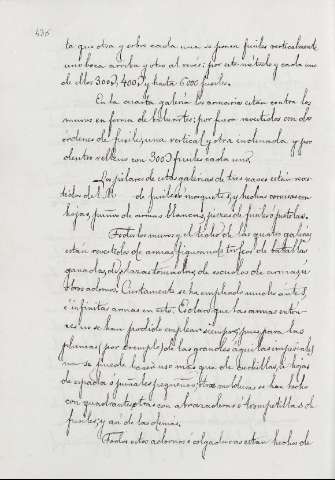 436
ta que otra y sobre cada una se ponen fusiles verticalmente
una boca arriba y otra al revés: por este método y cada uno
de ellos 3000, 4000 y hasta 6000 fusiles.
En la cuarta galería los armarios están contra los
muros en forma de baluartes: por fuera revestidos con dos
órdenes de fusiles; una vertical y otra inclinada y por
dentro rellenos con 3000 fusiles cada uno.
Los pilares de estas galerías de tres pases están reves-
tidos de fusiles o mosquetes, y hechos cornisas con
hojas, puños de armas blancas, piezas de fusiles o pistolas.
Todos los muros y el techo de las cuatro galerías
están revestidos de armas figurando trofeos de batallas
ganadas, de plazas tomadas, de escudos de armas u
otros adornos. Ciertamente se ha empleado mucho arte
é infinitas armas en esto. Es claro que las armas ente-
ras no se han podido emplear siempre, pues para las
plumas (por exemplo) de las grandes águilas imperiales
no se puede hacer uso más que de cuchillas, u hojas
de espada o puñales pequeños; otras molduras se han hecho
con cuadrantes; otras con abrazaderas ó trompetillas de
fusiles, y así de las demás.
Todos estos adornos ó colgaduras están hechos de